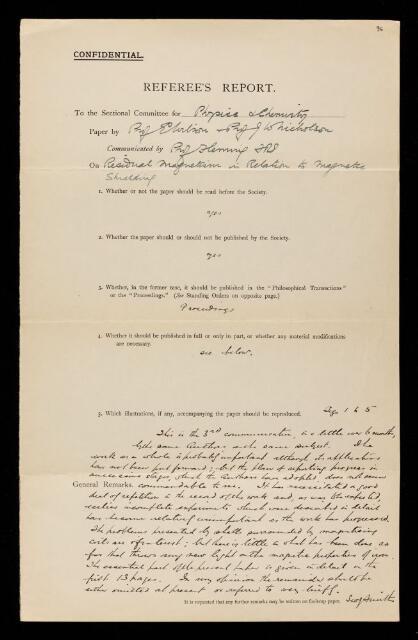 96
CONFIDENTIAL.
REFEREE'S REPORT.
To the Sectional Committee for Physics & Chemistry
Paper by Prof E Wilson & Prof J W Nicholson
Communicated by Prof Fleming FRS
On Residual Magnetism in Relation to Magnetic
Shielding
1. Whether or not the paper should be read before the Society.
yes
2. Whether the paper should or should not be published by the Society.
yes
3. Whether, in the former case, it should be published in the "Philosophical Transactions"
or the "Proceedings." (See Standing Orders on opposite page.)
Proceedings
4. Whether it should be published in full or only in part, or whether any material modifications
are necessary.
see below.
5. Which illustrations, if any, accompanying the paper should be reproduced.
Figs 1 & 5
This is the 3rd communication, in a little over 6 months,
by the same Authors on the same subject. The
work as a whole is probably important although its applications
have not been put forward; but the plan of reporting progress in
successive stages, which the Authors have adopted, does not seem
General Remarks.
commendable to me. It has necessitated a good
deal of repetition in the record of the work and, as was to be expected,
earlier incomplete experiments which were described in detail
has become relatively unimportant as the work has progressed.
The problems presented by a shell surrounded by magnetising
coils are of interest; but there is little in what has been done so
far that throws any new light on the magnetic properties of iron.
The essential part of the present paper is given in detail in the
first 13 pages. In my opinion the remainder should be
either omitted at present or referred to very briefly.
It is requested that any further remarks may be written on foolscap paper.